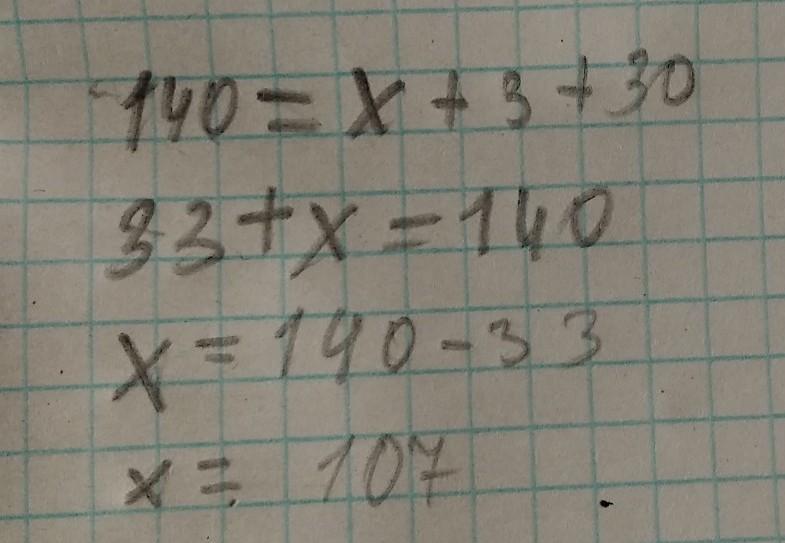 140 = x + 3 + 30
33 + x = 140
x = 140 - 33
x = 107